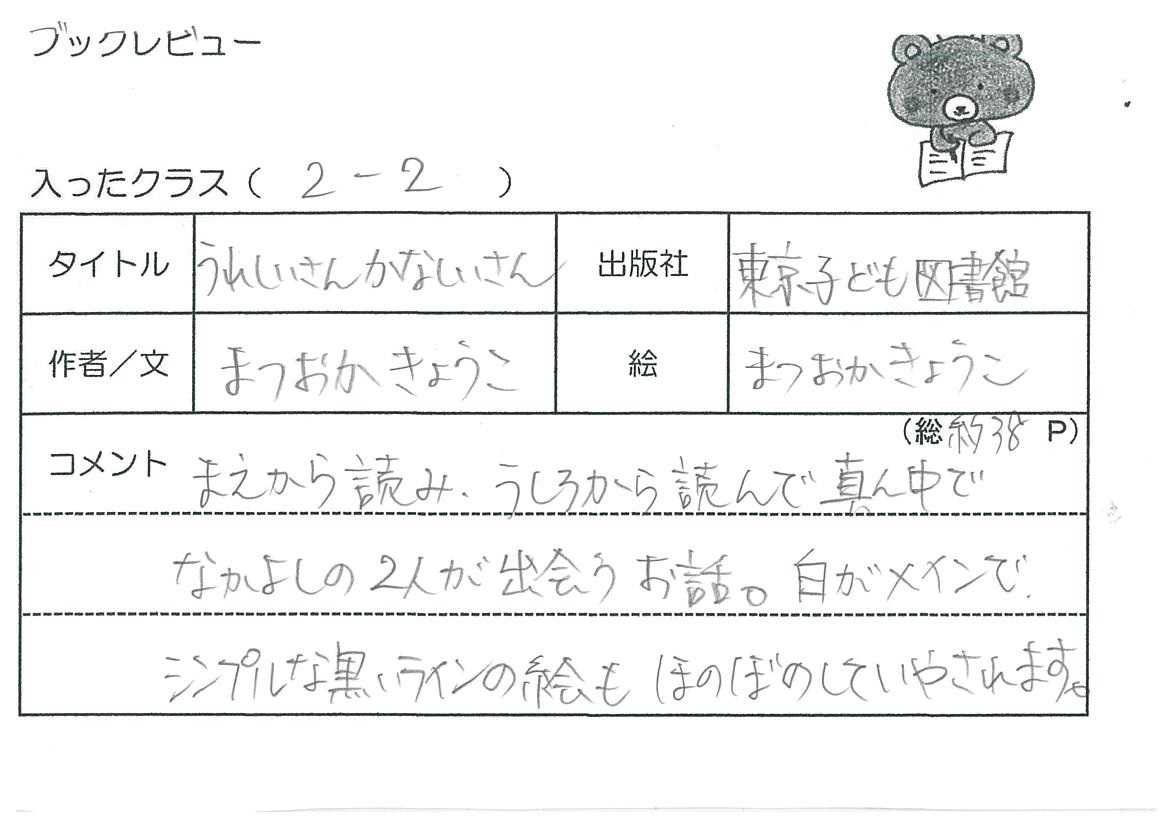 ブックレビュー
入ったクラス（ 2－2 ）
タイトル うれしいさんかなしいさん 出版社 東京子ども図書館
作者／文 まつおか きょうこ 絵 まつおかきょうこ
（総 約38 P）
コメント まえから読み、うしろから読んで真ん中で
なかよしの2人が出会うお話。白がメインで、
シンプルな黒いラインの絵も ほのぼのしていやされます。